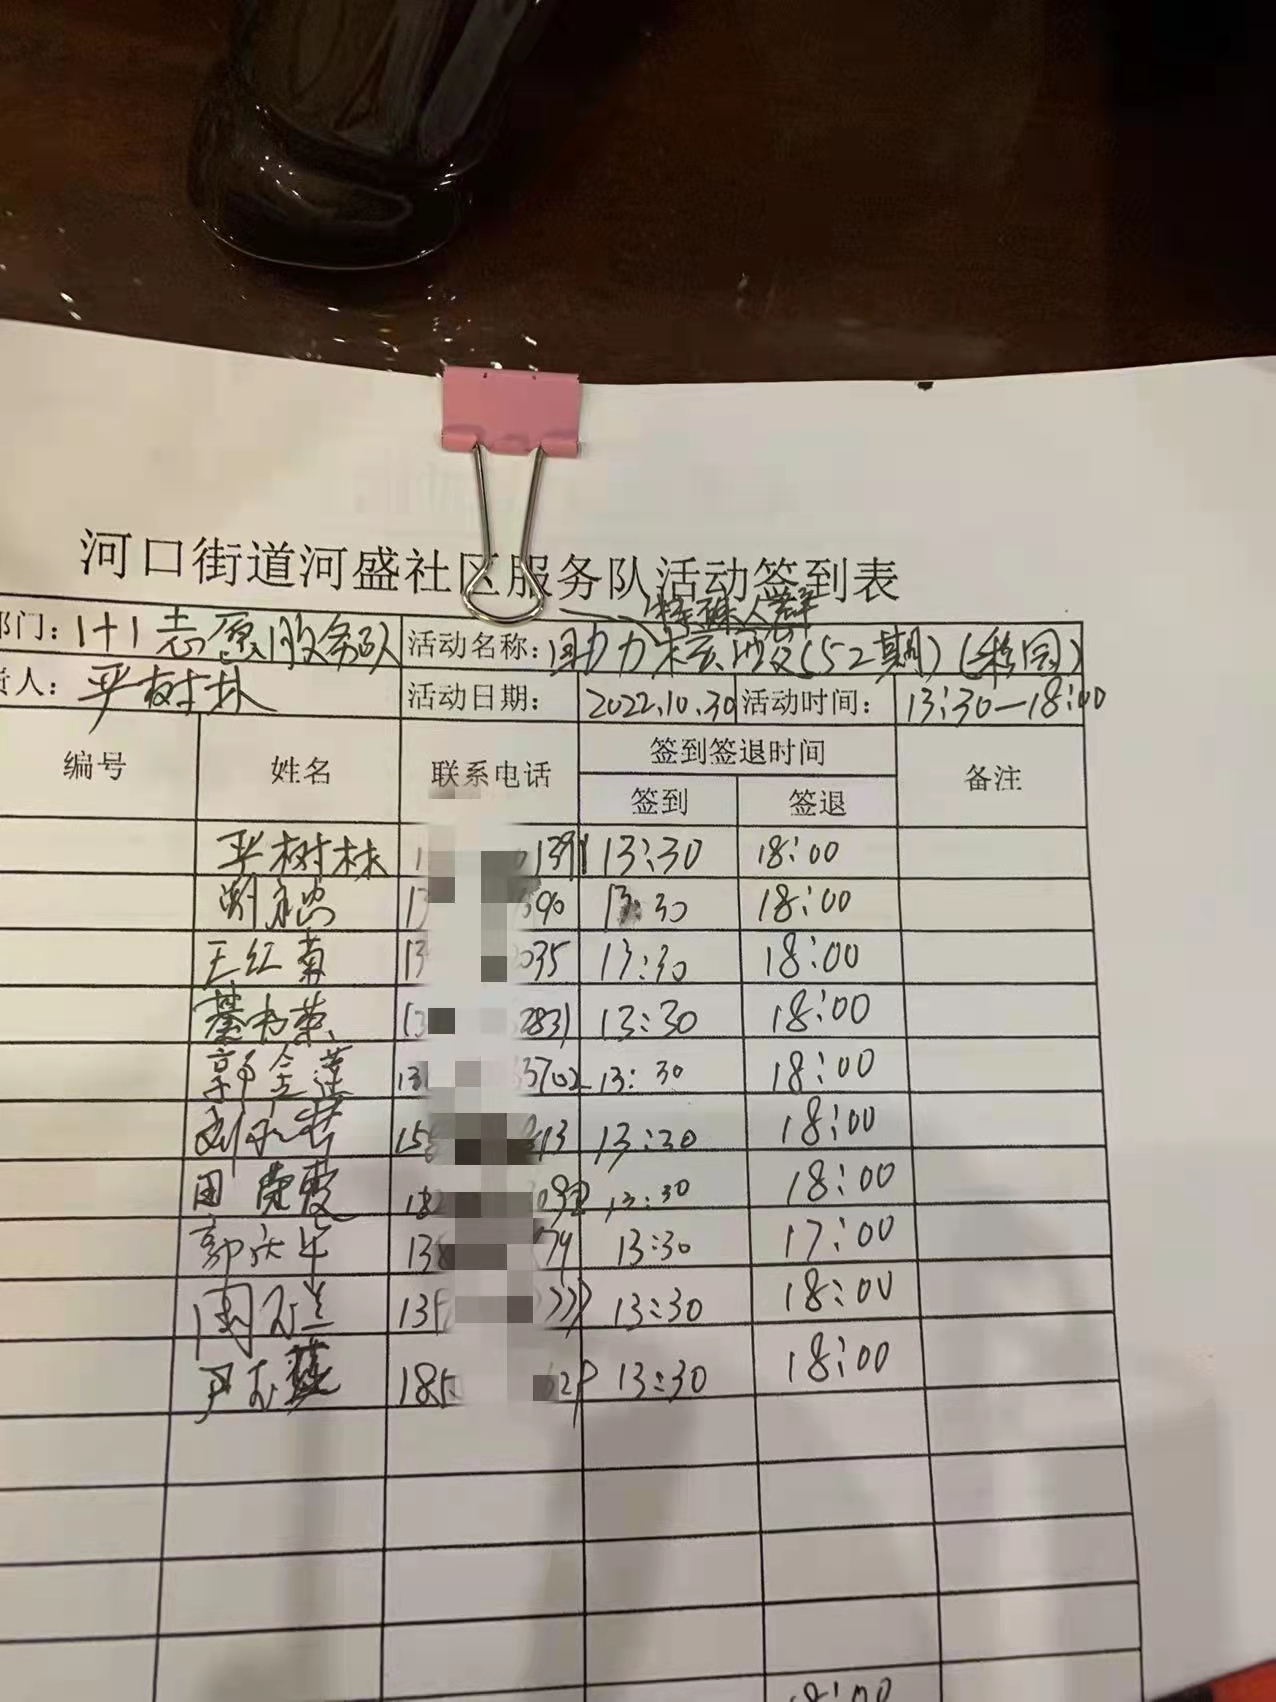 河口街道河盛社区服务队活动签到表
特殊人群
部门：1+1志愿服务队 活动名称： (52期)
责人： 严树林 活动日期： 2022.10.30 活动时间： 13:30—18:00
编号 姓名 联系电话 签到签退时间 备注
签到 签退
严树林 1 1391 13:30 18:00
13 390 13:30 18:00
王红菊 13 035 13:30 18:00
綦 荣 13 2831 13:30 18:00
郭金莲 13 3702 13:30 18:00
刘 158 13 13:30 18:00
田 霞 182 13:30 18:00
郭庆华 138 79 13:30 17:00
周 兰 13 13:30 18:00
尹 燕 185 13:30 18:00
18:00